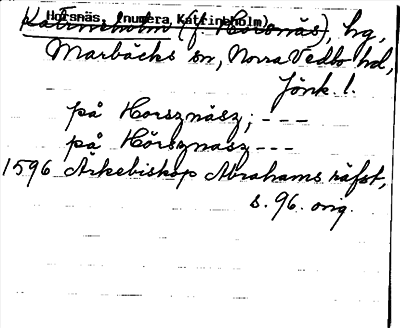 Horsnäs, (numera Katrineholm)
Katrineholm (f. Horsnäs), hg,
Marbäcks sn, Norra Vedbo hd,
Jönk. l.
på Horsznäsz; ---
på Hörsznäsz ---
1596 Ärkebiskop Abrahams räfst,
s. 96. orig.